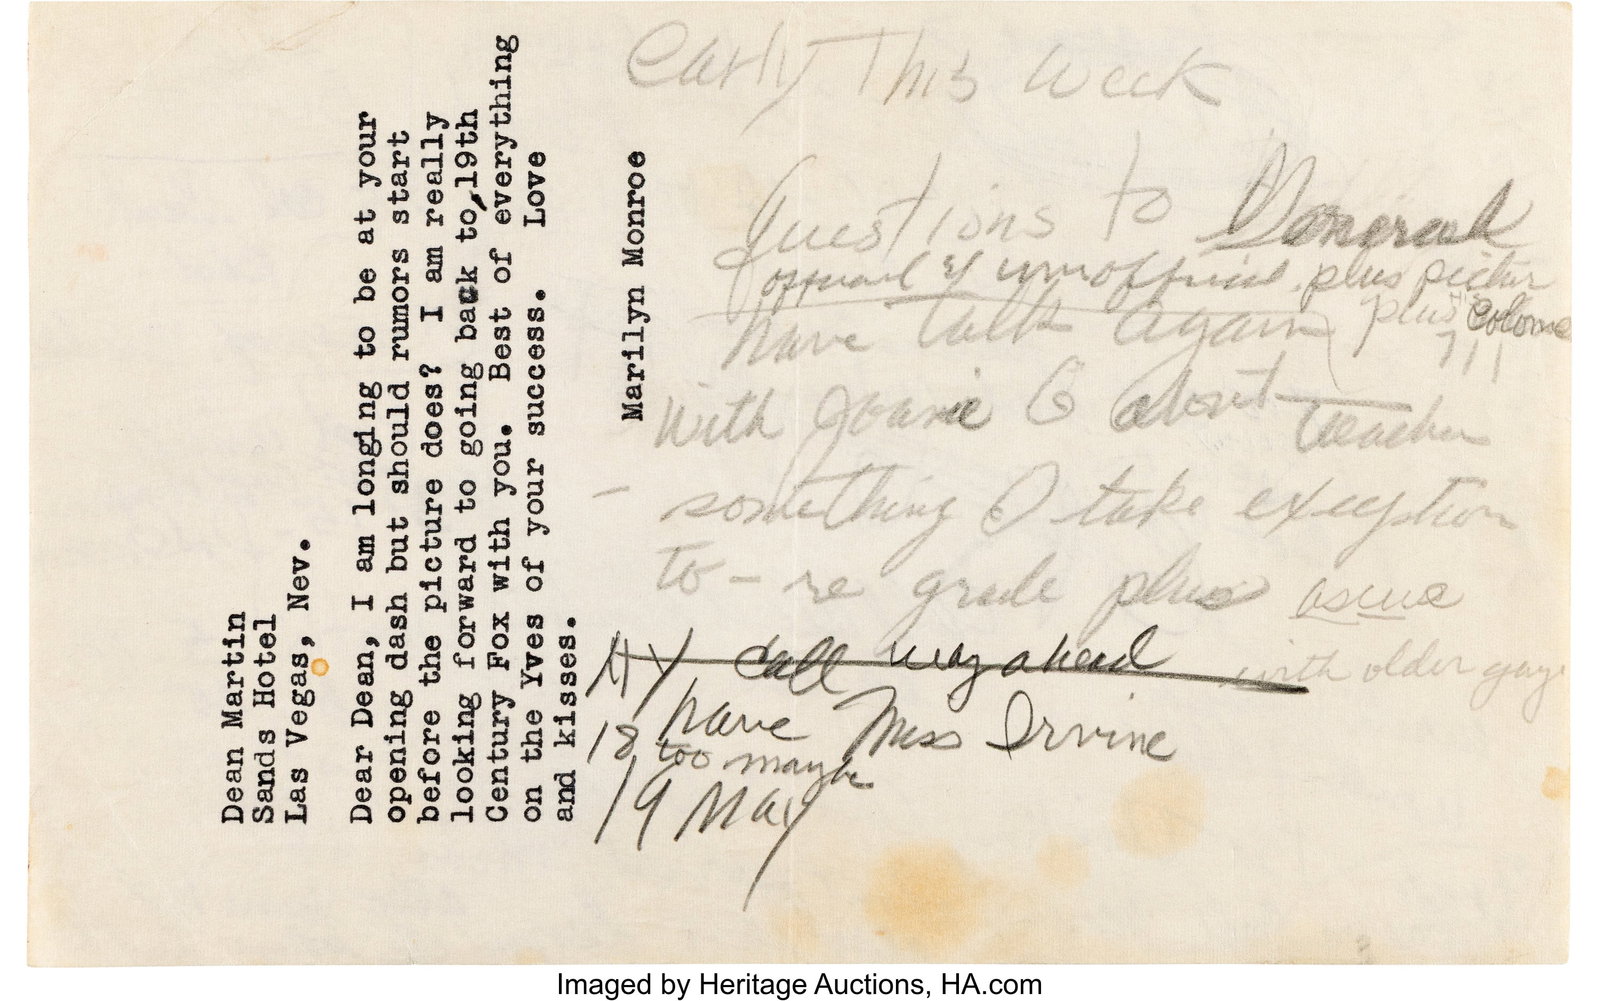 Dean Martin
Sands Hotel
Las Vegas, Nev.
Dear Dean, I am longing to be at your
opening dash but should rumors start
before the picture does? I am really
looking forward to going back to, 19th
Century Fox with you. Best of everything
on the Yves of your success. Love
and kisses.
Marilyn Monroe
Early This Week
Questions to General
official & unofficial plus picture
have talk again plus Colome
711
with Joanie G about teacher
- something I take exception
to - re grade plus
with older guys
call way ahead
have Miss Irvine
18 too maybe
19 May
Imaged by Heritage Auctions, HA.com